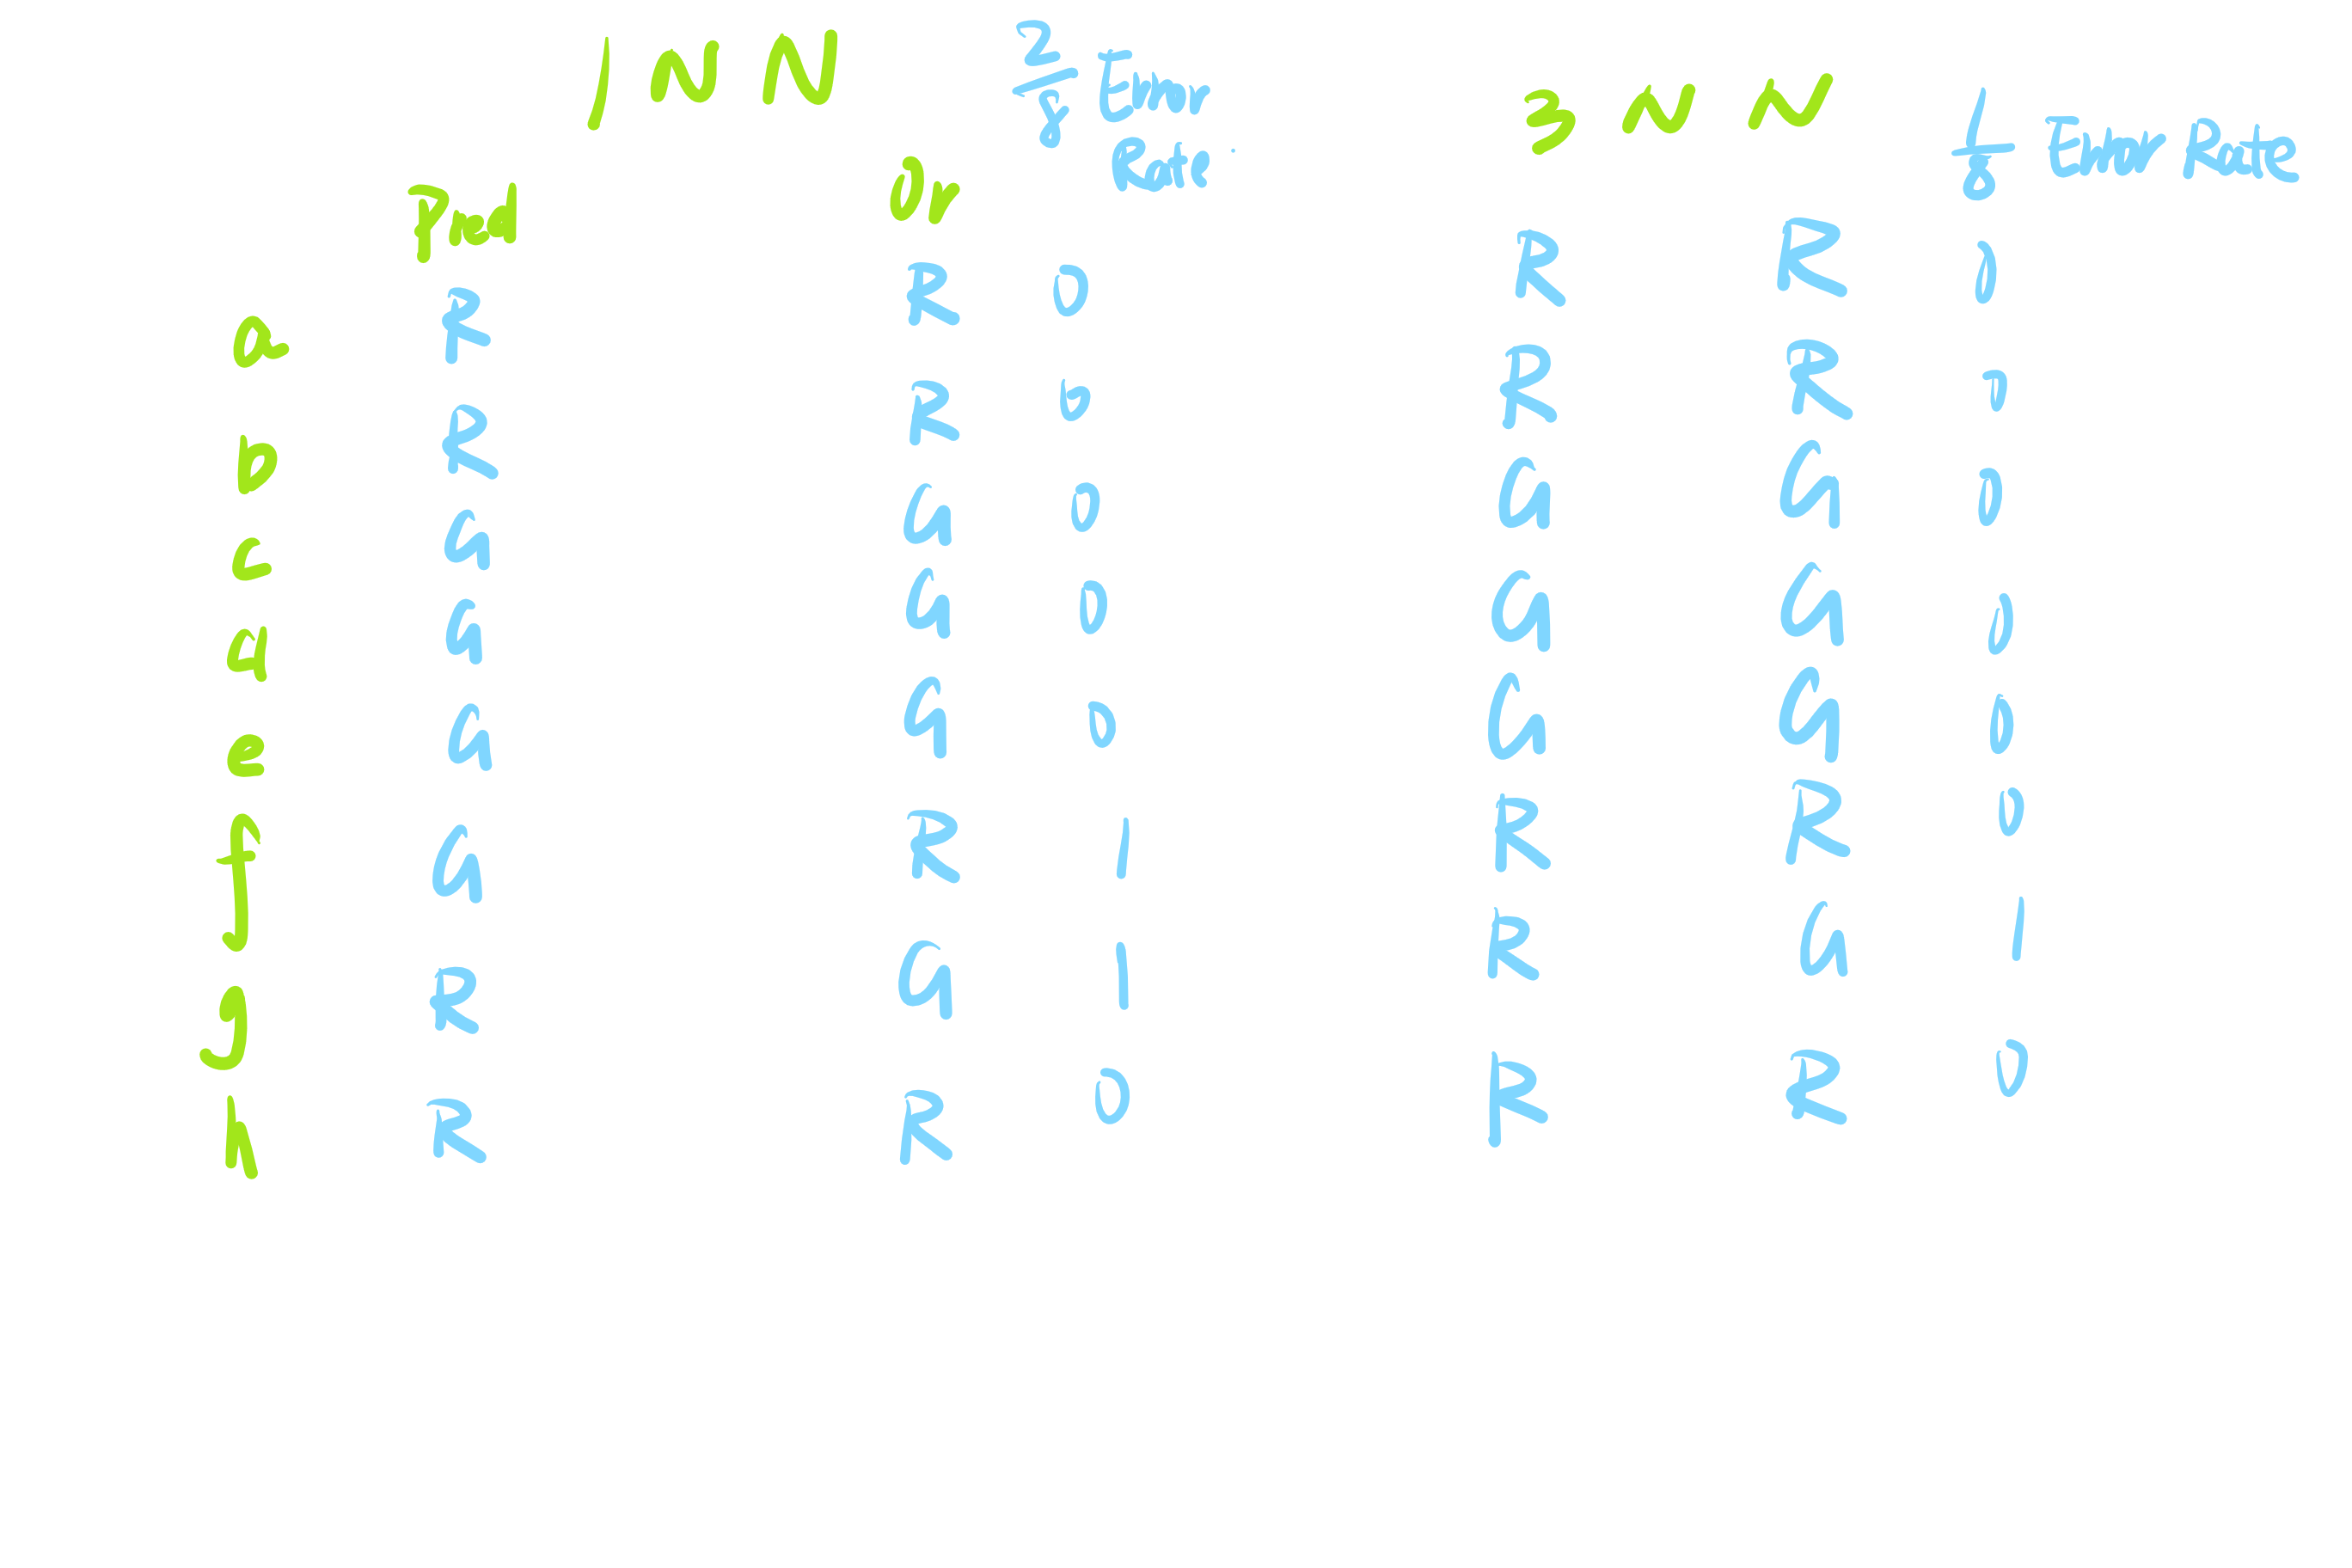 1 N N 2/8 Error Rate 3 N N 1/8 Error Rate
Pred Or
a R R 0 R R 0
b R R 0 R R 0
c G G 0 G G 0
d G G 0 G G 0
e G G 0 G G 0
f G R 1 R R 0
g R G 1 R G 1
h R R 0 R R 0